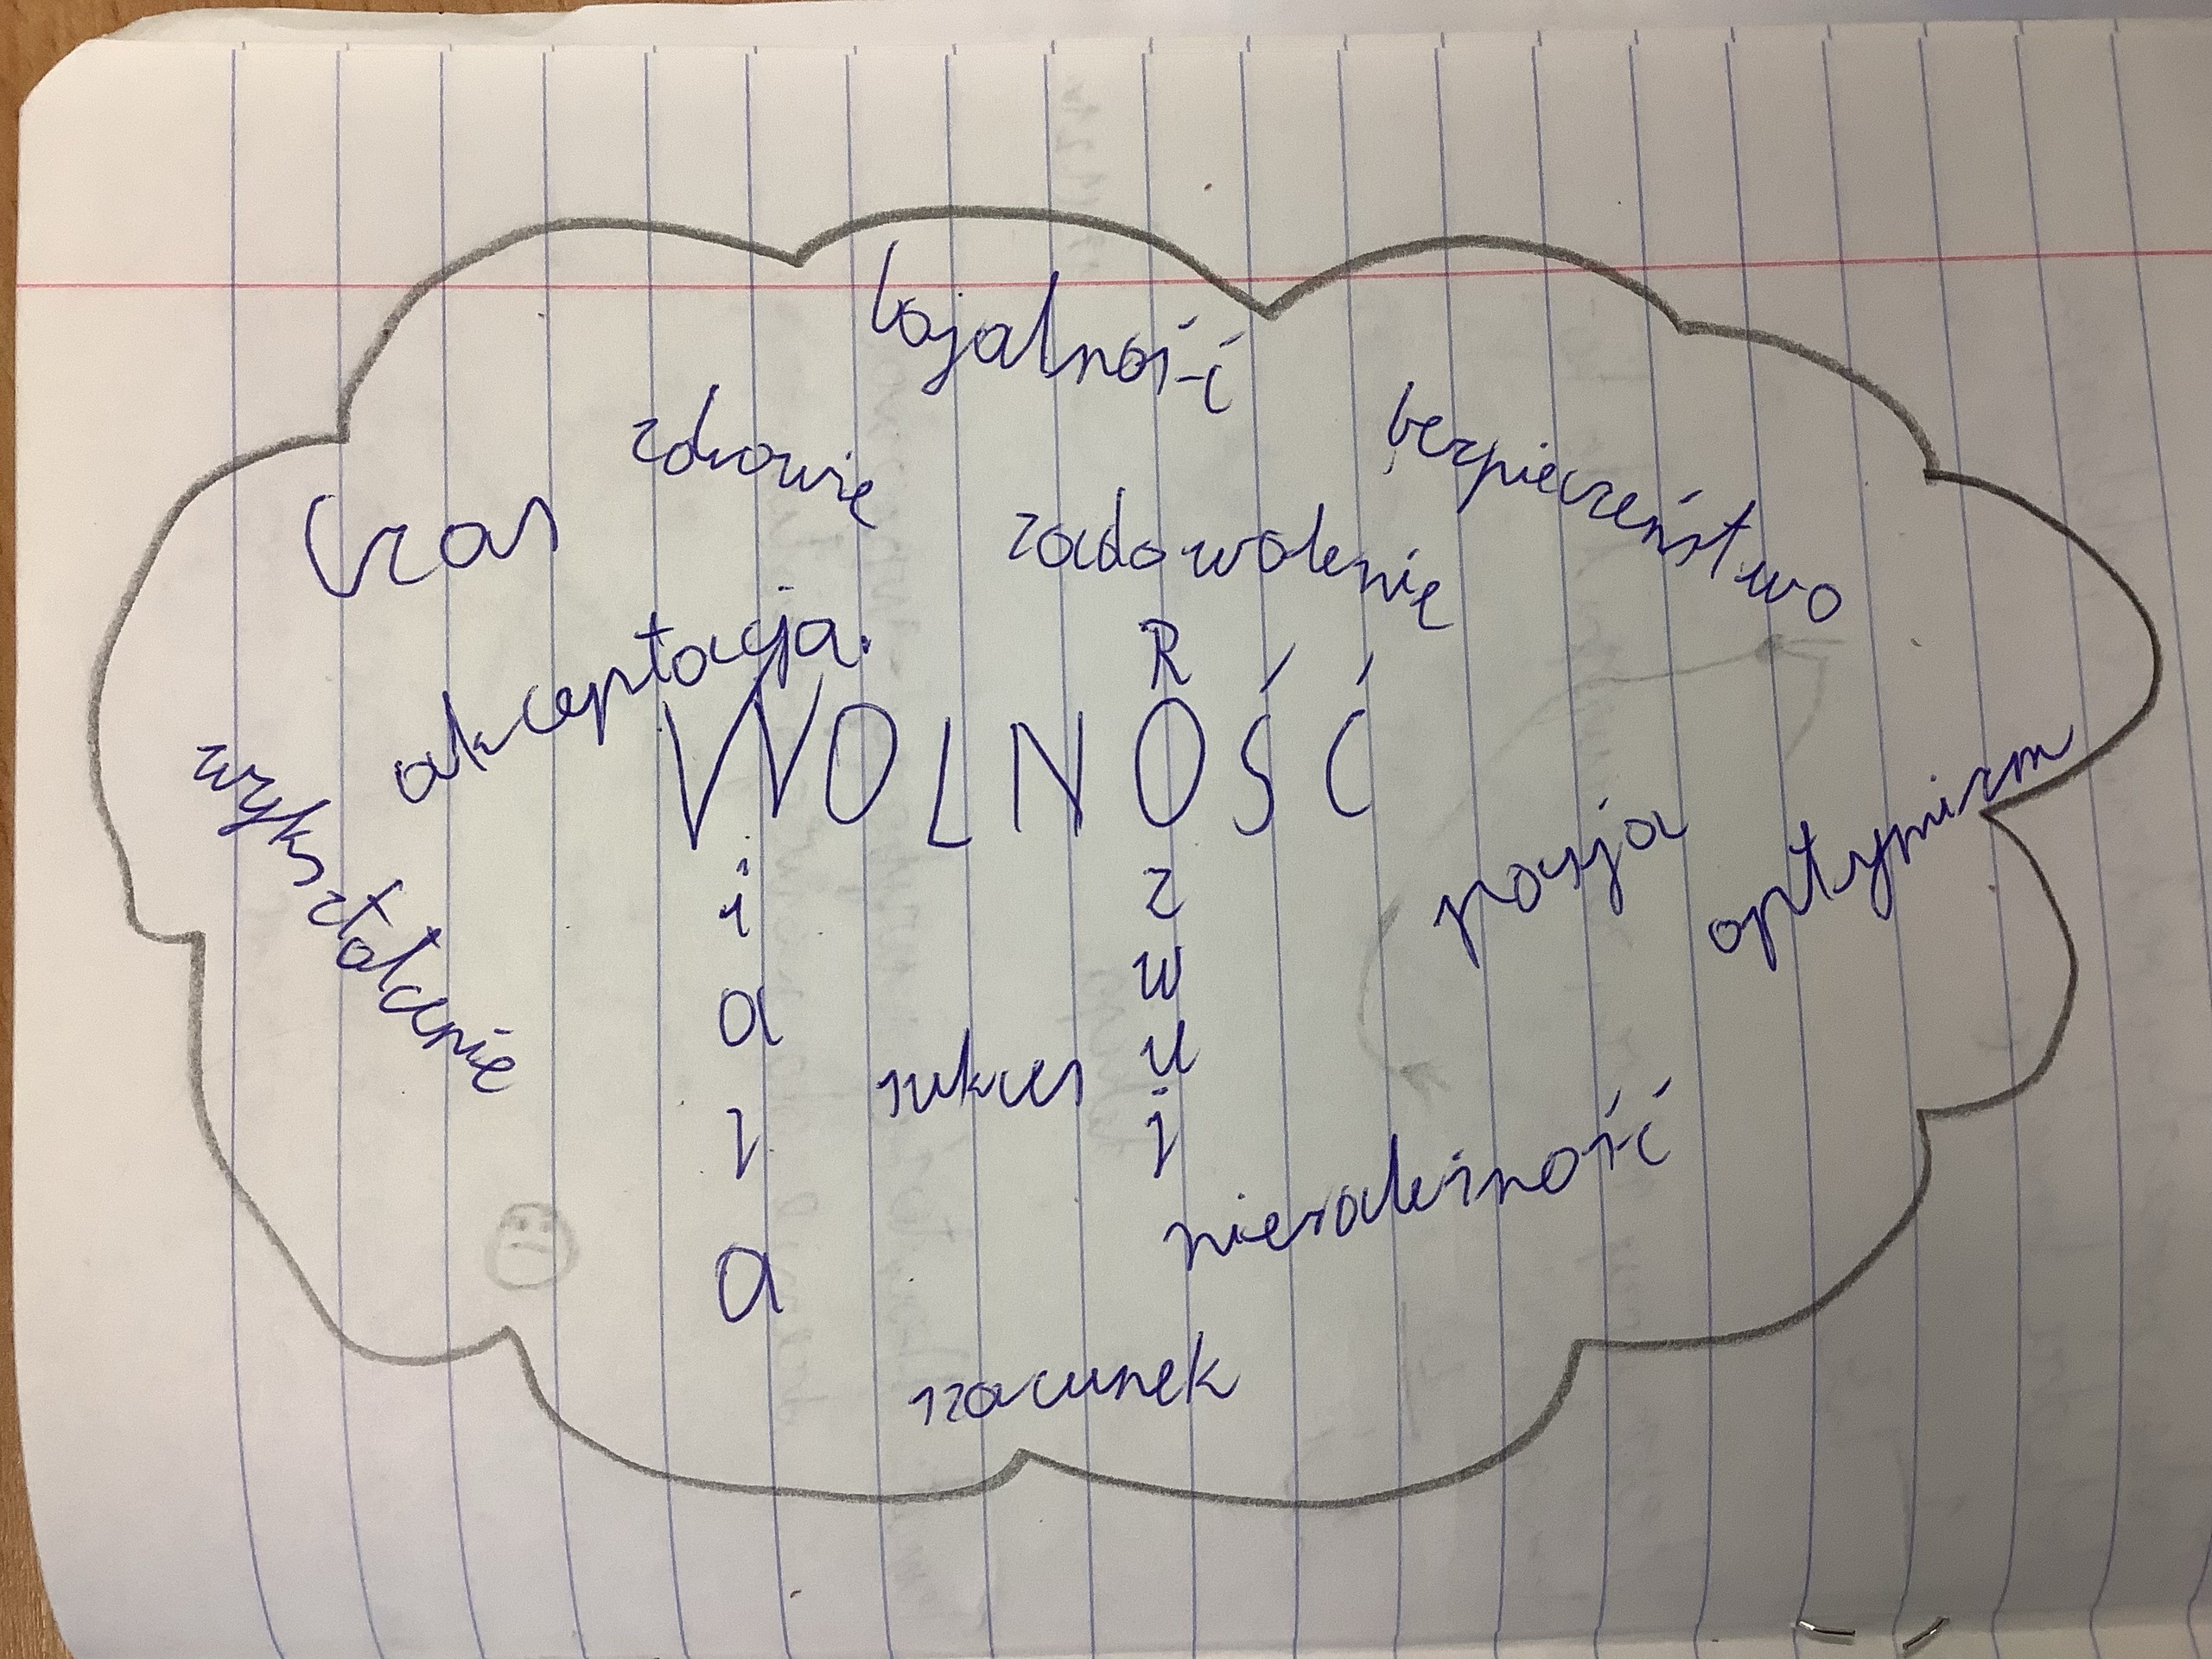 lojalność
zdrowie
bezpieczeństwo
Czas
zadowolenie
akceptacja
R
WOLNOŚĆ
wykształcenie
i
a
r
a
z
w
ó
j
pasja
optymizm
sukces
niezależność
szacunek